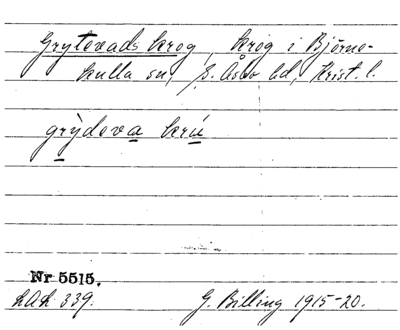 Grytevads krog, krog i Björne-
kulla sn, S. Åsbo hd, Krist. l.
grỳdeva krú
Nr 5515.
LAL 339. G. Billing 1915-20.